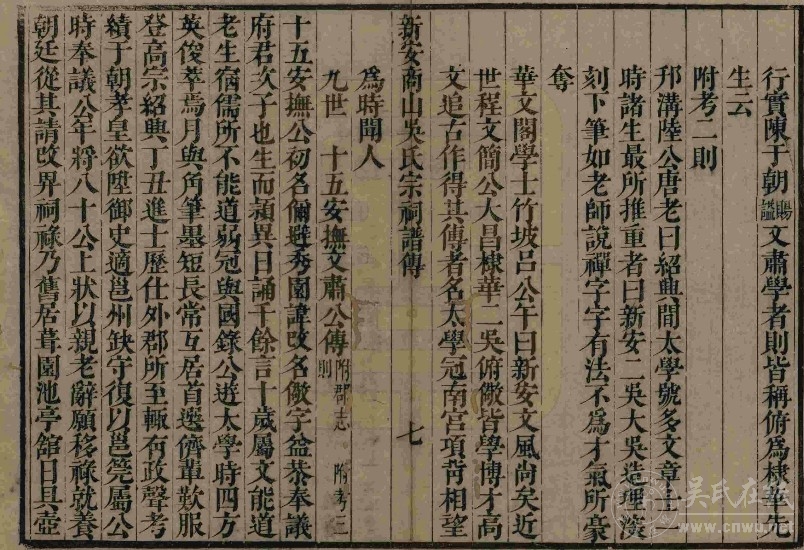 行實陳于朝賜謚文肅學者則皆稱俯為棣華先
生云
附考二則
邗溝陸公唐老曰紹興間太學號多文章士一
時諸生最所推重者曰新安二吳大吳造理演
刻下筆如老師說禪字字有法不為才氣所豪
奪
華文閣學士竹坡呂公午曰新安文風尚矣近
世程文簡公大昌棣華二吳俯儆皆學博才高
文追古作得其傳者名太學冠南宮項背相望
新安商山吳氏宗祠譜傳 七
為時聞人
九世 十五安撫文肅公傳附郡志一則 附考三
十五安撫公初名偁避秀園諱改名儆字益恭奉議
府君次子也生而穎異日誦千餘言十歲屬文能道
老生宿儒所不能道弱冠與國錄公遊太學時四方
英俊萃焉月與角筆墨短長常互居首選儕輩歎服
登高宗紹興丁丑進士歷仕外郡所至輒有政聲考
績于朝孝皇欲陞御史適邕州缺守復以邕筦屬公
時奉議公年將八十公上狀以親老辭願移祿就養
朝廷從其請改畀祠祿乃舊居葺園池亭舘日具壺
吳氏在線
www.cnwu.net